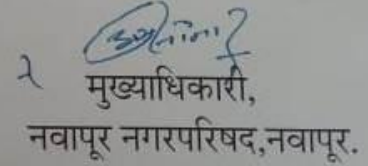 मुख्याधिकारी,
नवापूर नगरपरिषद,नवापूर.